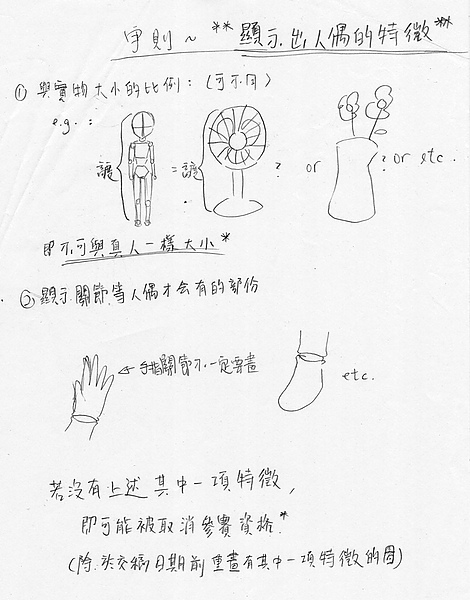 守則～ **顯示出人偶的特徵**
① 與實物大小的比例：(可不同)
e.g. :
讓 = 讓 ? or ? or etc.
即不可與真人一樣大小*
② 顯示關節等人偶才会有的部份
← 手指關節不一定要畫
etc.
若沒有上述其中一項特徵，
即可能被取消參賽資格.*
(除於交稿日期前重畫有其中一項特徵的圖)